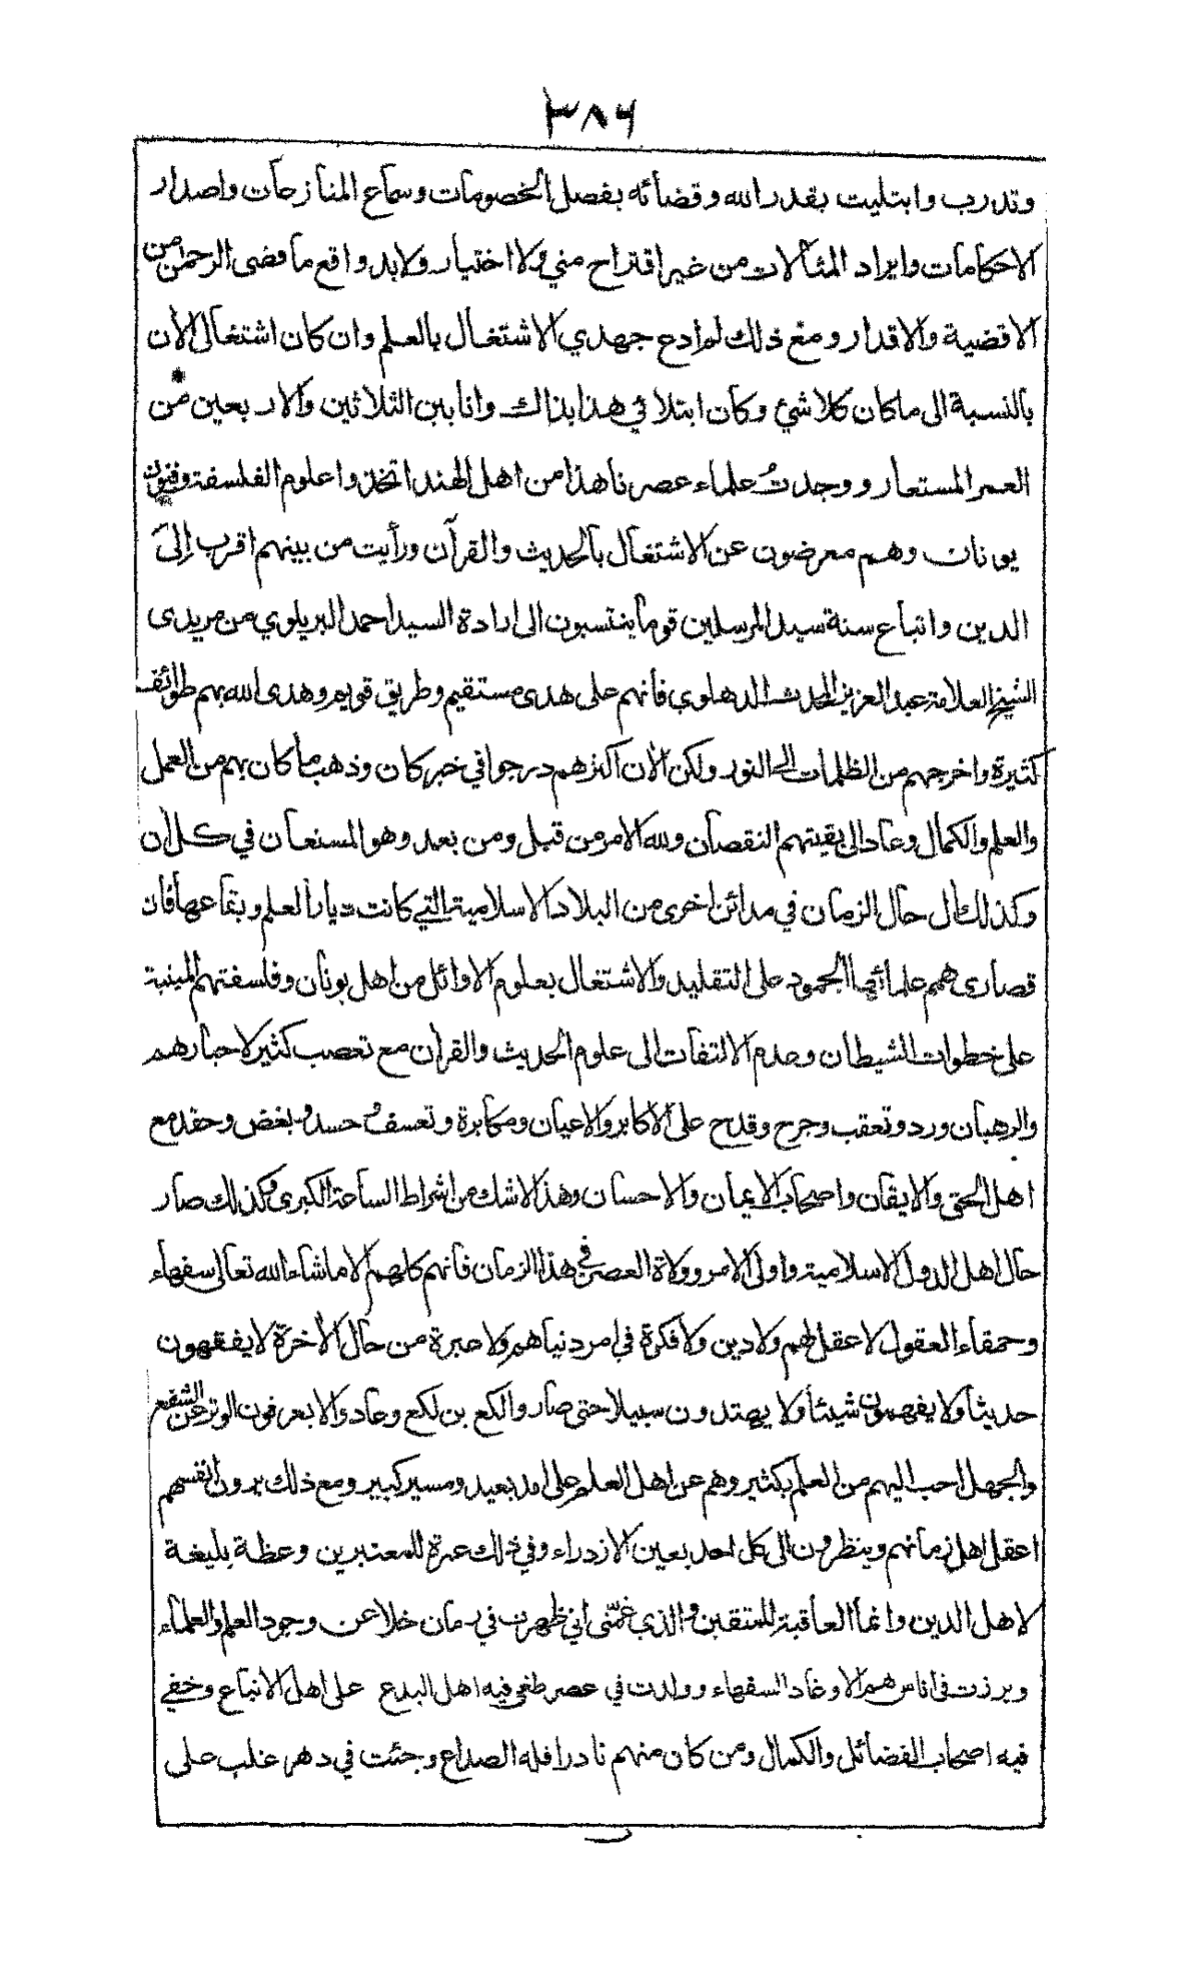 ٣٨٦
وتدرب وابتليت بقدر الله وقضائه بفصل الخصومات وسماع المنازعات واصدار
الاحكامات وايراد المثالات من غير اقتراح مني ولا اختيار ولابد واقع ما قضى الرحمن من
الاقضية والاقدار ومع ذلك لم ادع جهدي الاشتغال بالعلم وان كان اشتغالى الآن
بالنسبة الى ما كان كلا شئ وكان ابتلائي هذا بذاك وانا بين الثلاثين والاربعين من
العمر المستعار ووجدتُ علماء عصرنا هذا من اهل الهند اتخذوا علوم الفلسفة وفنون
يونان وهم معرضون عن الاشتغال بالحديث والقرآن ورأيت من بينهم اقرب إلىَ
الدين واتباع سنة سيد المرسلين قوما ينتسبون الى ارادة السيد احمد البريلوي من مريدى
الشيخ العلامة عبد العزيز المحدث الدهلوي فانهم على هدى مستقيم وطريق قويم وهدى الله بهم طوائف
كثيرة واخرجهم من الظلمات الى النور ولكن الآن اكثرهم درجوا في خبر كان وذهب ما كان بهم من العمل
والعلم والكمال وعاد الى بقيتهم النقصان ولله الامر من قبل ومن بعد وهو المستعان في كل آن
وكذلك آل حال الزمان في مدائن اخرى من البلاد الاسلامية التي كانت ديار العلم وبقاعها فان
قصارى همم علمائها الجمود على التقليد والاشتغال بعلوم الاوائل من اهل يونان وفلسفتهم المبنية
على خطوات الشيطان وعدم الالتفات الى علوم الحديث والقرآن مع تعصب كثير لاحبارهم
والرهبان ورد وتعقب وجرح وقدح على الاكابر والاعيان ومكابرة وتعسف و حسد و بغض وحقد مع
اهل الحق والايقان واصحاب الايمان والاحسان وهذا لا شك من اشراط الساعة الكبرى وكذلك صار
حال اهل الدول الاسلامية واولى الامر وولاة العصر في هذا الزمان فانهم كلهم الا ما شاء الله تعالى سفهاء
وحمقاء العقول لا عقل لهم ولا دين ولا فكرة في امر دنياهم ولا عبرة من حال الآخرة لا يفقهون
حديثا ولا يفهمون شيئا ولا يهتدون سبيلا حتى صاروا لكع بن لكع وعادوا لا يعرفون الوتر عن الشفع
والجهل احب اليهم من العلم بكثير وهم عن اهل العلم على امد بعيد ومسير كبير ومع ذلك يرون انفسهم
اعقل اهل زمانهم وينظرون الى كل احد بعين الازدراء وفي ذلك عبرة للمعتبرين وعظة بليغة
لاهل الدين وانما العاقبة للمتقين والذي غمّنى اني ظهرت في زمان خلا عن وجود العلم والعلماء
وبرزت فى اناس هم الاوغاد السفهاء وولدت في عصر طغى فيه اهل البدع على اهل الاتباع وخفي
فيه اصحاب الفضائل والكمال ومن كان منهم نادرا فله الصداع وجئت في دهر غلب على